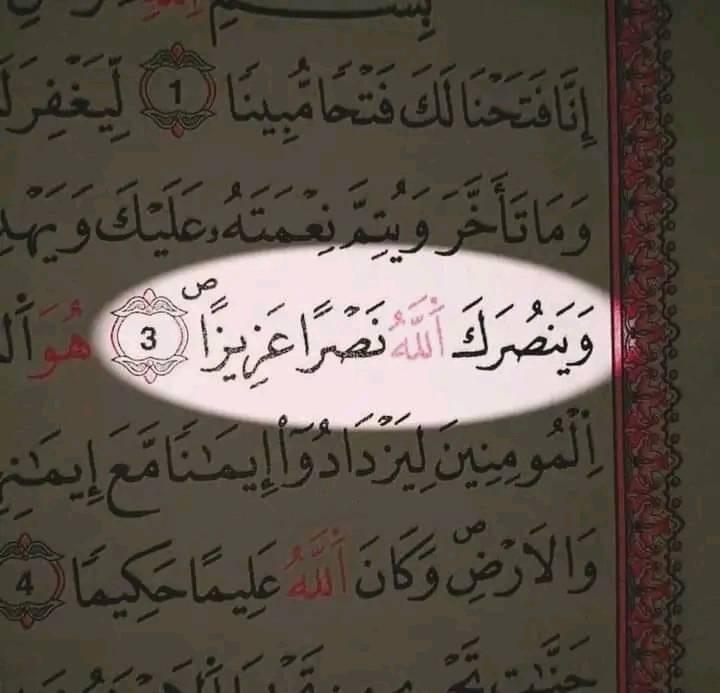 بِسْمِ اِ۬للَّهِ
إِنَّا فَتَحْنَا لَكَ فَتْحًا مُّبِينًا 1 لِّيَغْفِرَ لَ
وَمَا تَأَخَّرَ وَيُتِمَّ نِعْمَتَهُۥ عَلَيْكَ وَيَهْدِ
وَيَنصُرَكَ اَ۬للَّهُ نَصْرًا عَزِيزًاۖ 3 هُوَ اَ۬ل
اِ۬لْمُومِنِينَ لِيَزْدَادُوٓاْ إِيمَٰنًا مَّعَ إِيمَٰنِهِ
وَالَارْضِۖ وَكَانَ اَ۬للَّهُ عَلِيمًا حَكِيمًا 4
جَنَّٰتٍ تَجْرِے